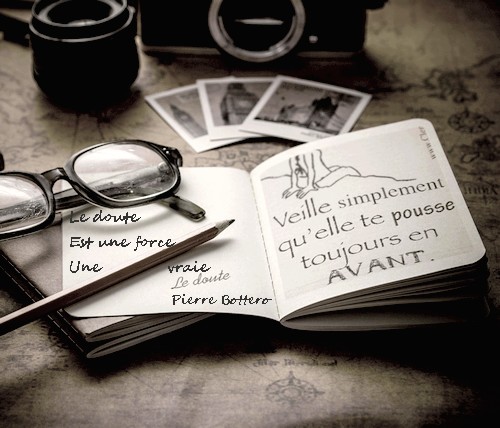 Le doute
Est une force
Une vraie
Le doute
Pierre Bottero
Veille simplement
qu'elle te pousse
toujours en
AVANT.